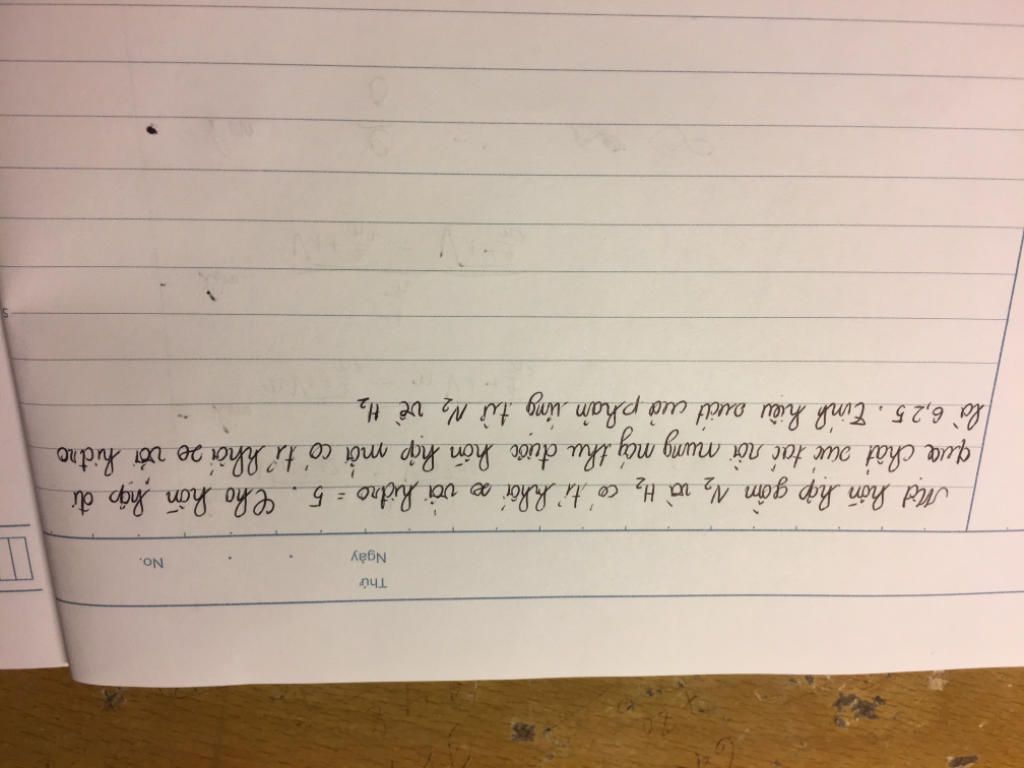 Thứ
Ngày . . No.
Một hỗn hợp gồm N2 và H2 có tỉ khối so với hidro = 5. Cho hỗn hợp đi
qua chất xúc tác rồi nung máy thu được hỗn hợp mới có tỉ khối so với hidro
là 6,25. Tính hiệu suất cuả phản ứng từ N2 về H2